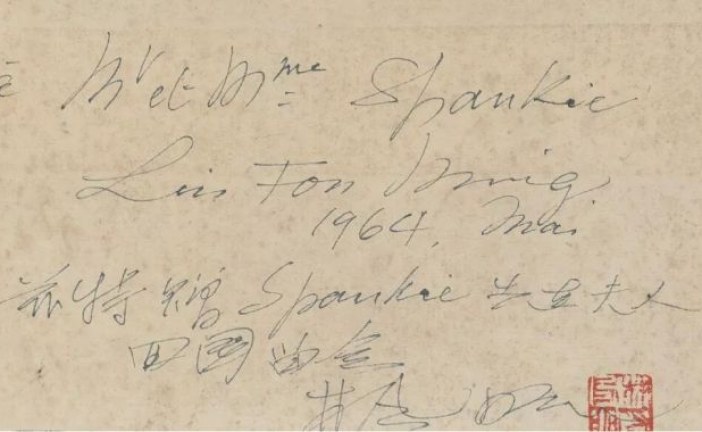 Mr et Mme Spankie
Lin Fon Ming
1964, Mai
兹特赠 Spankie 先生夫人
回国留念
林风眠